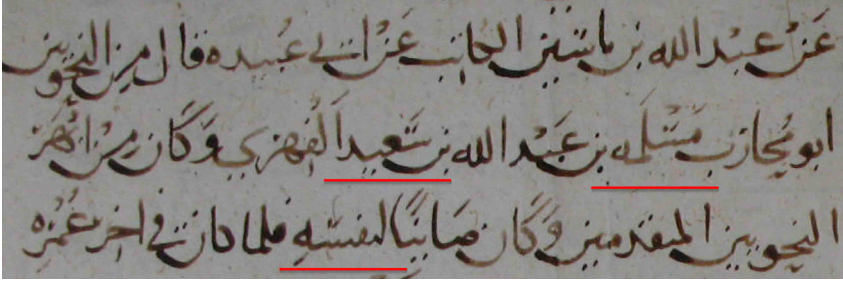 عَنْ عبْد الله بن ياسِين الكاتب عَنْ ابي عُبيده قال مِن النحويين
ابو مُحارب مَسْلمه بن عَبْد الله بن سَعيد الفِهري وَكَان مِنْ
النحويين المتقدمين وَكَان صَاينًا لنفسَهِ فلما كان في اخر عُمْره